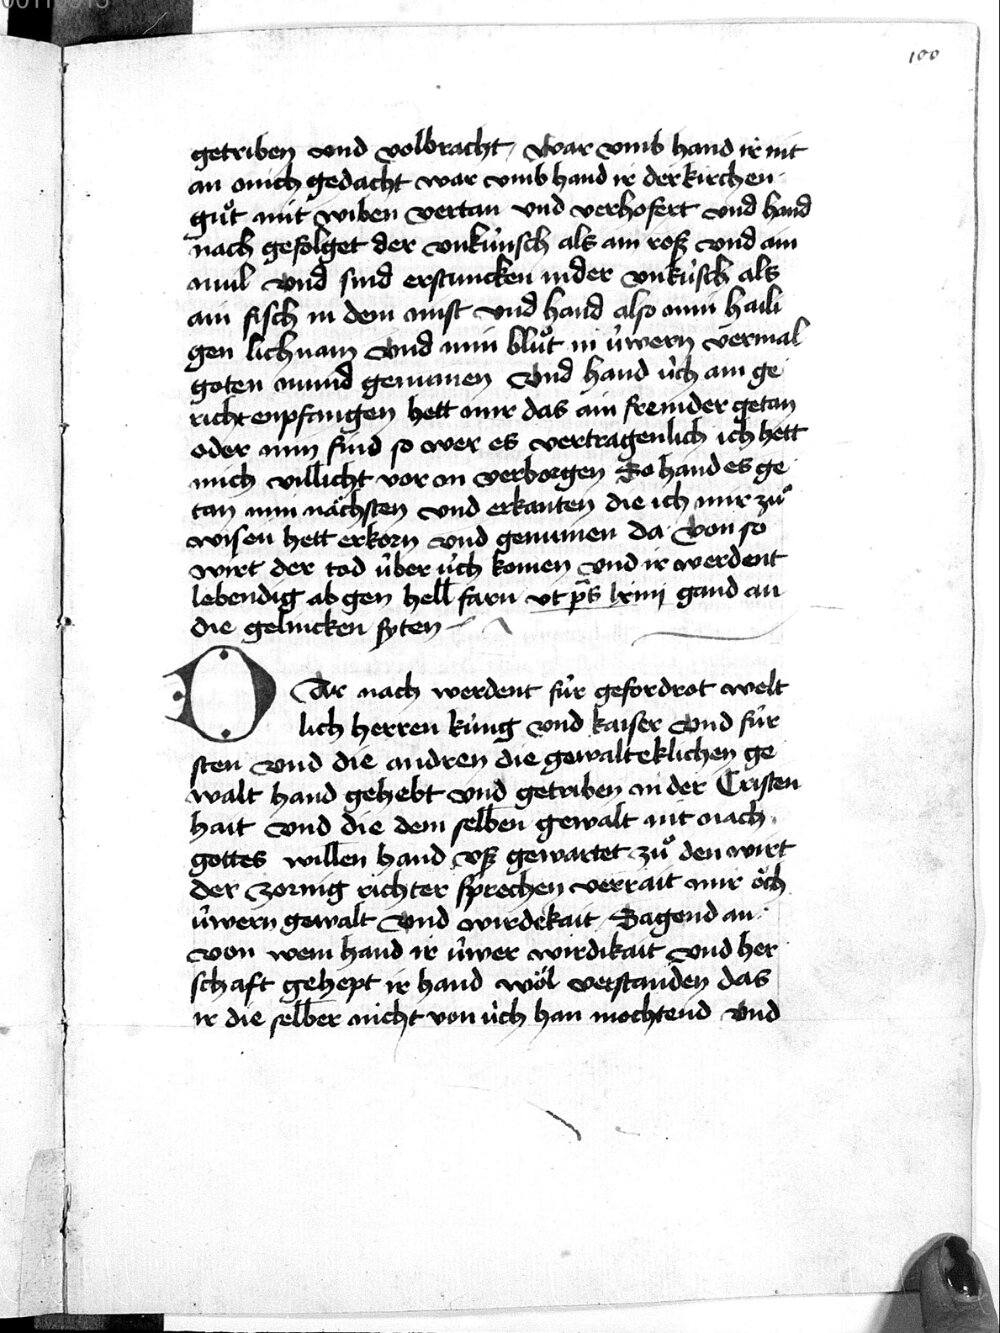 100
getriben vnd volbracht / War vmb hand ir nit
an mich gedacht war vmb hand ir der kirchen
guͦt mit wiben vertan vnd verhofert vnd hand
nach gefolget der vnkúnsch als ain roß vnd ain
mul Vnd sind erstuncken in der vnkúsch als
ain fisch in dem mist vnd hand also min haili
gen lichnam vnd min bluͦt in úwern vermal
goten mund genumen Vnd hand úch ain ge
richt enpfangen hett mir das ain fremder getan
oder min find so wer es vertragenlich ich hett
mich villicht vor im verborgen So hand es ge
tan min nächsten vnd erkanten die ich mir zuͦ
wisen hett erkorn vnd genumen da von so
wirt der tod úber úch komen vnd ir werdent
lebendig ab gen hell farn vt ps lxiiij gand an
die gelincken syten
Dar nach werdent fúr gefordrot welt
lich herren kúng vnd kaiser vnd fúr
sten vnd die andren die gewalteklichen ge
walt hand gehebt vnd getriben in der Cristen
hait vnd die dem selben gewalt nit nach
gottes willen hand vß gewartet zuͦ den wirt
der zornig richter sprechen verrait mir öch
úwern gewalt vnd wirdekait Sagend an
von wem hand ir úwer wirdikait vnd her
schaft gehept ir hand wöl verstanden das
ir die selber nicht von úch han mochtend vnd